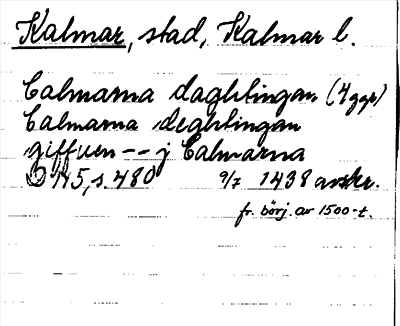 Kalmar, stad, Kalmar l.
Calmarna daghtingan (4 ggr)
Calmarna deghtingan
giffuen -- j Calmarna
D 115, s. 480 9/7 1438 avskr.
fr. börj. av 1500-t.